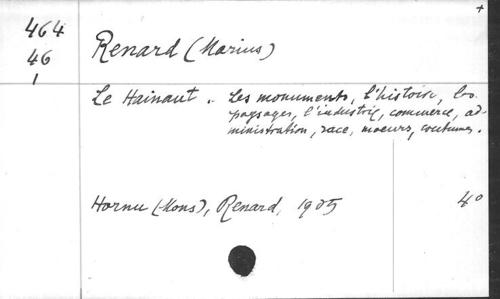 +
464
46
1
Renard (Marius)
Le Hainaut. Les monuments, l'histoire, les
paysages, l'industrie, commerce, ad-
ministration, race, moeurs, coutumes.
Hornu (-Mons), Renard, 1905
4°